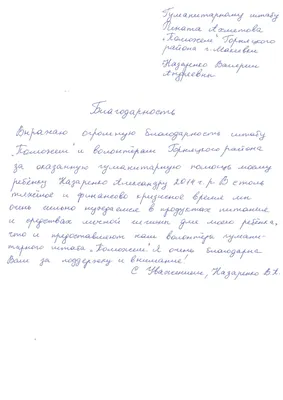 Гуманитарному штабу
Рината Ахметова
„Поможем" Горняцкого
района г. Макеевки
Назаренко Валерии
Андреевны
Благодарность
Выражаю огромную благодарность штабу
„Поможем" и волонтёрам Горняцкого района
за оказанную гуманитарную помощь моему
ребёнку Назаренко Александру 2014 г.р. В столь
тяжёлое и финансово кризисное время мы
очень сильно нуждаемся в продуктах питания
и средствах личной гигиены для моего ребёнка,
что и предоставляют нам волонтёры гумани-
тарного штаба „Поможем". Я очень благодарна
Вам за поддержку и внимание!
С Уважением, Назаренко В.А.